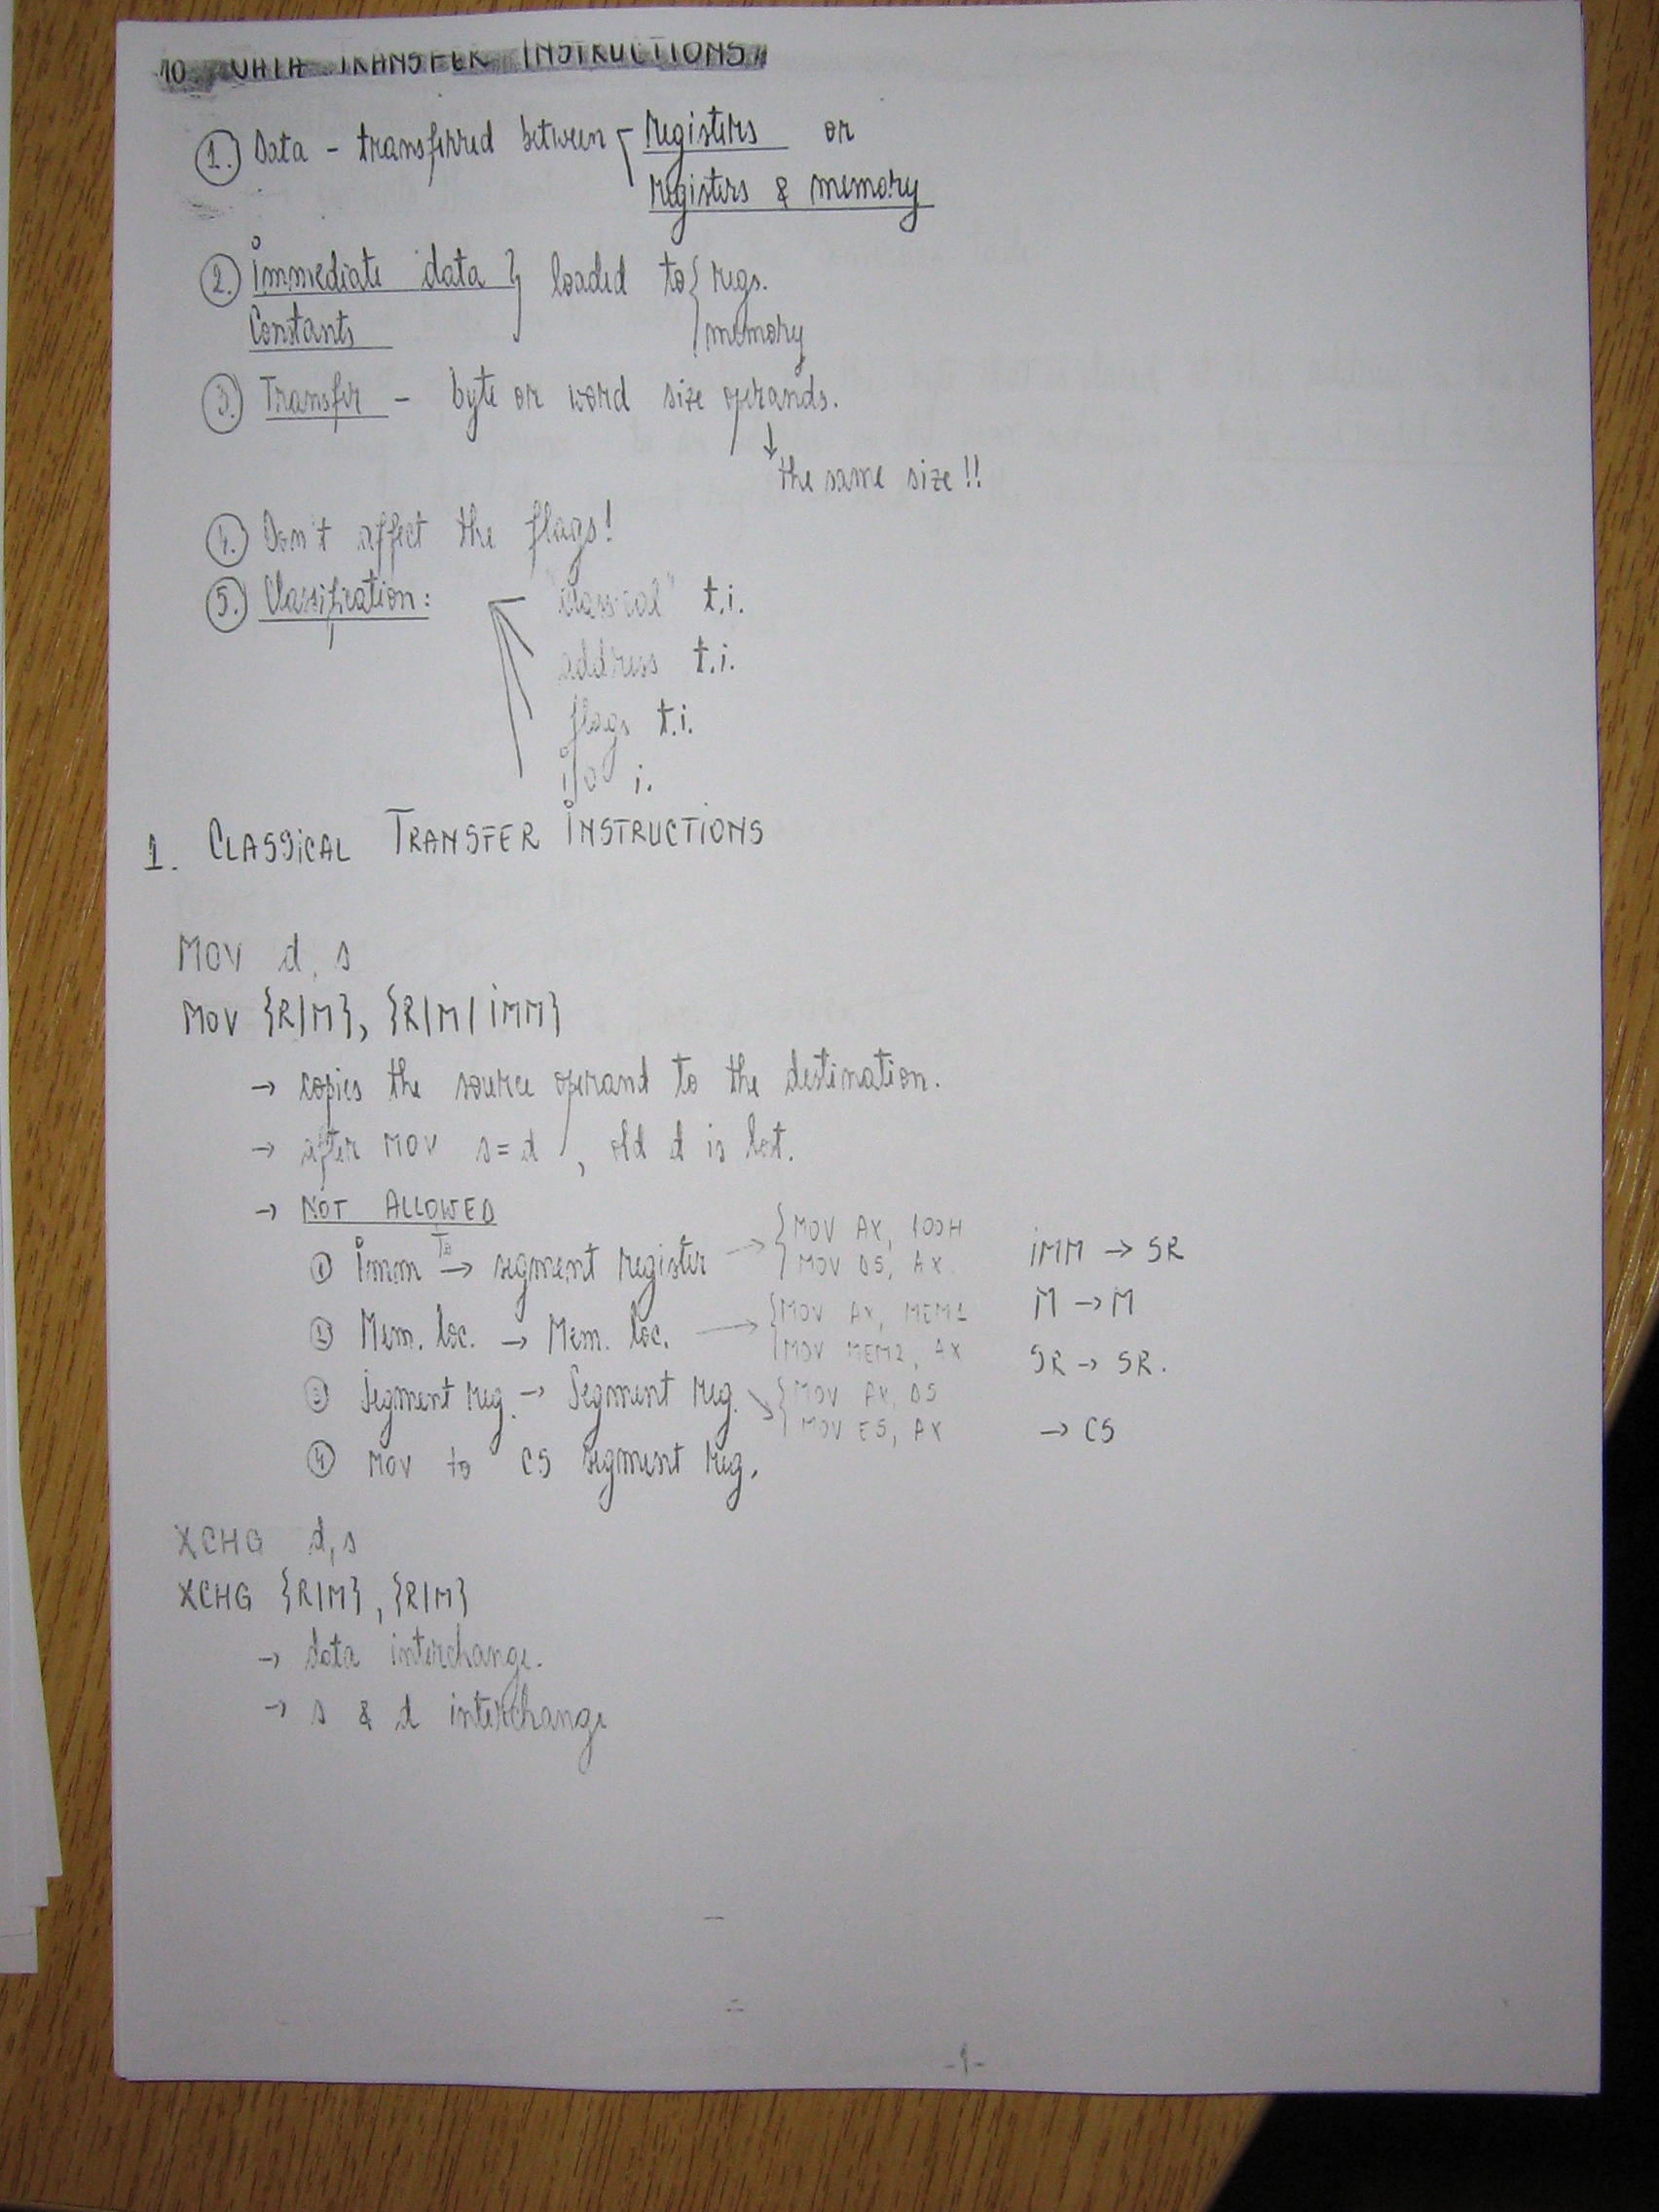 10. DATA TRANSFER INSTRUCTIONS
1. Data - transferred between registers or
registers & memory
2. Immediate data } loaded to { regs.
Constants memory
3. Transfer - byte or word size operands.
↓ the same size!!
4. Don't affect the flags!
5. Classification: "classical" t.i.
address t.i.
flags t.i.
i/o i.
1. CLASSICAL TRANSFER INSTRUCTIONS
MOV d, s
MOV {R/M}, {R/M/IMM}
→ copies the source operand to the destination.
→ after MOV s=d, old d is lost.
→ NOT ALLOWED
1 Imm To → segment register → { MOV AX, 100H IMM → SR
MOV DS, AX
2 Mem. loc. → Mem. loc. → { MOV AX, MEM1 M → M
MOV MEM2, AX
3 Segment reg. → Segment reg. → { MOV AX, DS SR → SR.
MOV ES, AX
4 MOV to CS segment reg. → CS
XCHG d, s
XCHG {R/M}, {R/M}
→ data interchange.
→ s & d interchange
-1-